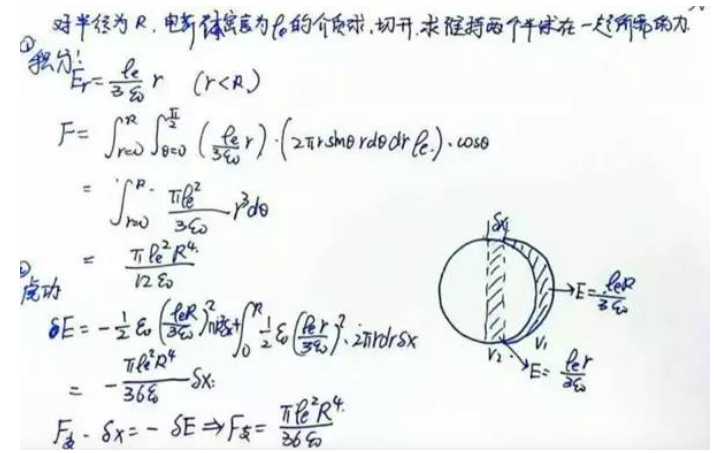 对半径为R,电荷体密度为ρe的介质球,切开,求维持两个半球在一起所需的力
① 积分:
Er = ρe/3ε0 r (r<R)
F = ∫_{r=0}^{R} ∫_{θ=0}^{π/2} (ρe/3ε0 r)·(2πr sinθ rdθdr ρe)·cosθ
= ∫_{r=0}^{R} πρe²/3ε0 r³dθ
= πρe²R⁴/12ε0
② 虚功
δE = -1/2 ε0 (ρeR/3ε0)² πR²δx + ∫_0^R 1/2 ε0 (ρe r/3ε0)²·2πrdrδx
= -πρe²R⁴/36ε0 δx
F·δx = -δE ⇒ F = πρe²R⁴/36ε0
δx
E = ρeR/3ε0
V1
V2
E = ρe r/3ε0